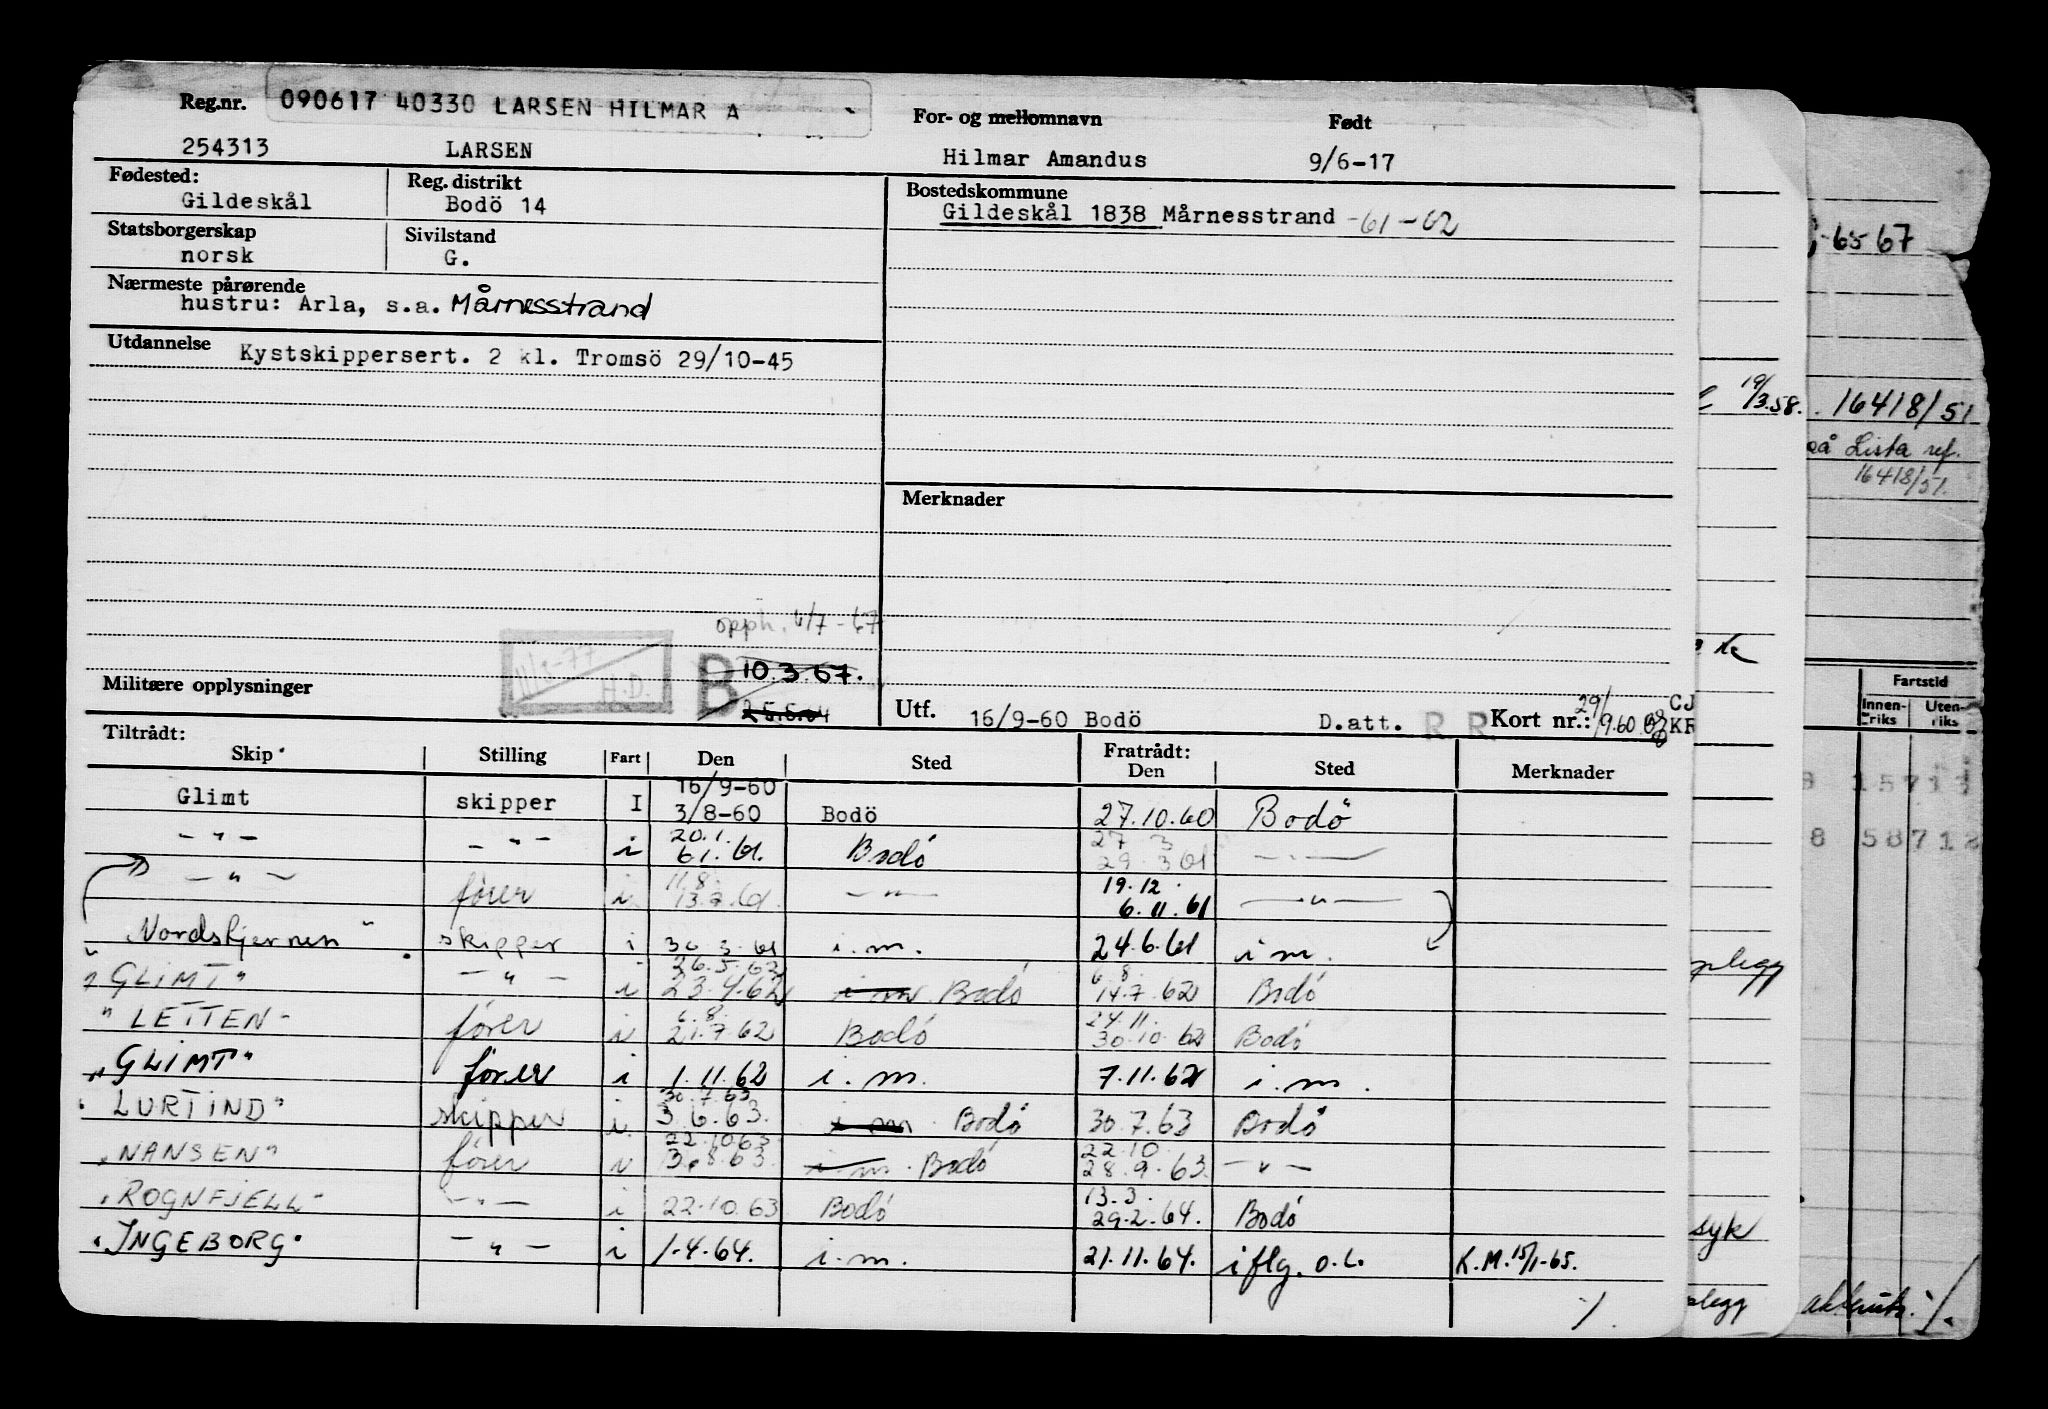 Reg.nr. 090617 40330 LARSEN HILMAR A For- og mellomnavn Født
254313 LARSEN Hilmar Amandus 9/6-17
Fødested: Reg. distrikt Bostedskommune
Gildeskål Bodö 14 Gildeskål 1838 Mårnesstrand -61-62
Statsborgerskap Sivilstand
norsk G.
Nærmeste pårørende
hustru: Arla, s.a. Mårnesstrand
Utdannelse Kystskippersert. 2 kl. Tromsö 29/10-45
Merknader
opph. 4/7-67
11/3-77 H.D. B 10.3.67.
Militære opplysninger 25.5.64 Utf. 16/9-60 Bodö D.att. R R Kort nr.: 29/9.60 CJ
KR
Tiltrådt: Fratrådt:
Skip Stilling Fart Den Sted Den Sted Merknader
16/9-60
Glimt skipper I 3/8-60 Bodö 27.10.60 Bodö
20.1. 27 3
- " - - " - i 61.61. Bodö 29.3 61 - " -
11.8. 19.12.
- " - förer i 13.7.61. - " - 6.11.61 - " -
"Nordstjernen" skipper i 30.3.61 i.m. 24.6.61 i m.
26.5.62 6.8.
"GLIMT" - " - i 23.4.62 i m. Bodö 14.7.62 Bodö
6.8. 24.11.
"LETTEN" förer i 21.7.62 Bodö 30.10.62 Bodö
"GLIMT" förer i 1.11.62 i.m. 7.11.62 i.m.
30.7.63
"LURTIND" skipper i. 3.6.63. i m. Bodö 30.7.63 Bodö
22.10.63 22.10.
"NANSEN" förer i 3.8.63. i m. Bodö 28.9.63 - " -
13.3.
"ROGNFJELL" - " - i 22.10.63 Bodö 29.2.64. Bodö
"INGEBORG" - " - i 1.4.64. i.m. 21.11.64. iflg. o.l. K.M. 15/1-65.
./.
65 67
19/3.58. 16418/51
på Lista ref.
16418/51.
Fartstid
Innenriks Utenriks
8 15713
8 58712
opplegg
syk
plegg ./.